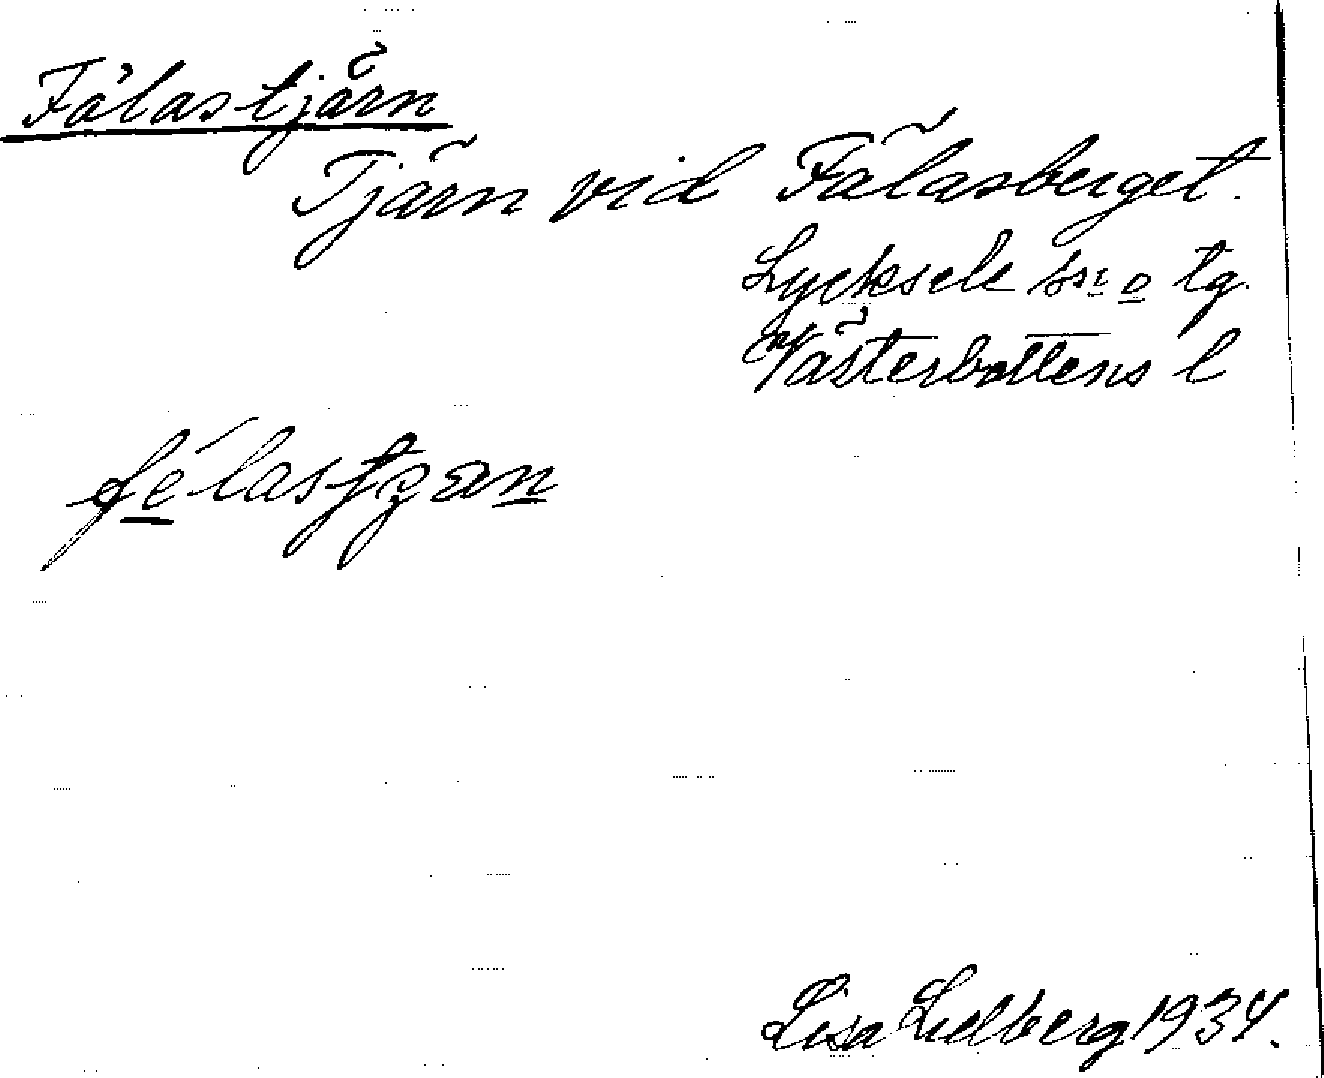 Fälastjärn
Tjärn vid Fälasberget.
Lycksele sn o tg.
Västerbottens l
Lisa Lidberg 1934.